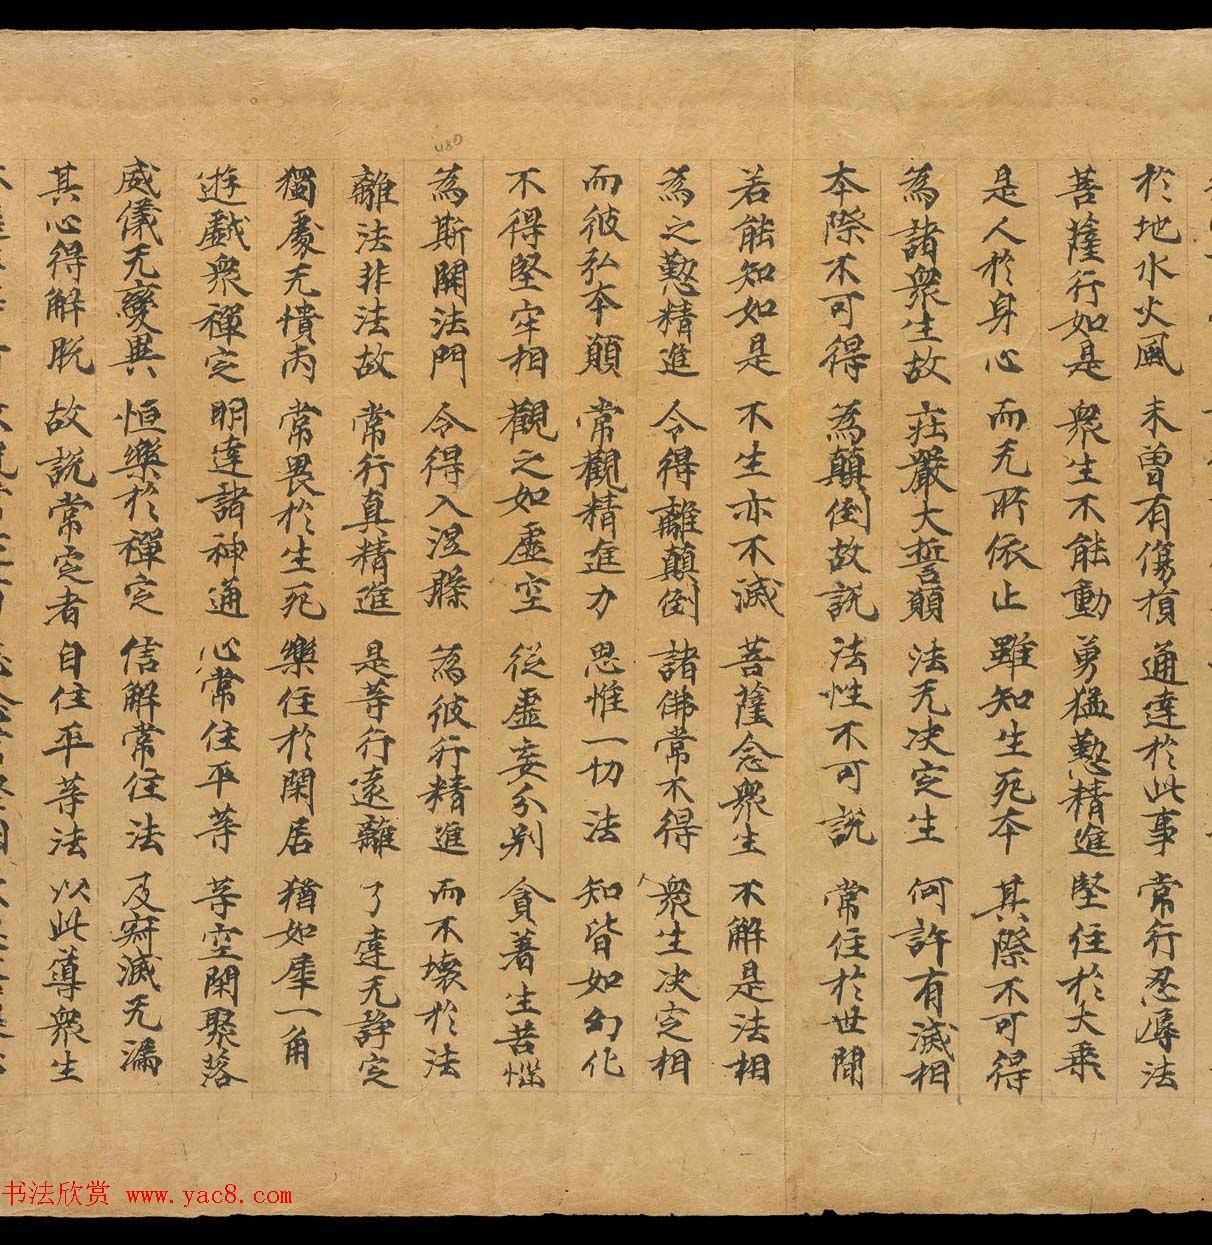 於地水火風 未曾有傷損 通達於此事 常行忍辱法
菩薩行如是 衆生不能動 勇猛懃精進 堅住於大乘
是人於身心 而无所依止 雖知生死本 其際不可得
為諸衆生故 莊嚴大誓願 法无决定生 何許有滅相
本際不可得 為顛倒故説 法性不可説 常住於世間
若能知如是 不生亦不滅 菩薩念衆生 不解是法相
為之懃精進 令得離顛倒 諸佛常不得 衆生决定相
而彼弘本願 常觀精進力 思惟一切法 知皆如幻化
不得堅牢相 觀之如虛空 從虛妄分別 貪著生苦惱
為斯開法門 令得入涅槃 為彼行精進 而不壞於法
離法非法故 常行真精進 是等行遠離 了達无諍定
獨處无憒丙 常畏於生死 樂住於閑居 猶如犀一角
遊戲衆禪定 明達諸神通 心常住平等 等空閑聚落
威儀无變異 恒樂於禪定 信解常住法 及寂滅无漏
其心得解脫 故説常定者 自住平等法 以此導衆生
480
书法欣赏 www.yac8.com